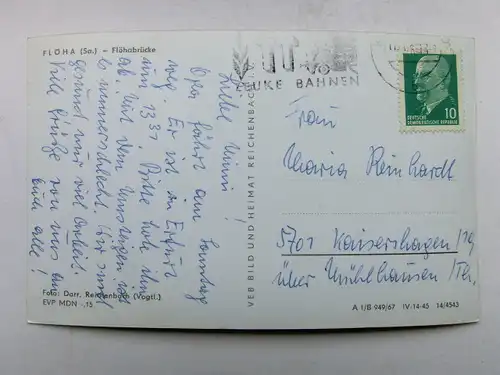 FLÖHA (Sa.) – Flöhabrücke
Liebe Mimi!
Opa fährt am Sonntag
weg. Er ist in Erfurt
um 13³¹. Bitte holt ihn
ab. Mit dem Umsteigen ist
es immer schlecht. Wir sind
gesund und viel Arbeit.
Viele Grüße von uns an
Euch alle!
Foto: Darr, Reichenbach (Vogtl.)
EVP MDN -,15
VEB BILD UND HEIMAT REICHENBACH
BAHNEN
DEUTSCHE
DEMOKRATISCHE REPUBLIK
10
Frau
Maria Reinhardt
5701 Kaisershagen
über Mühlhausen/Th.
A 1/B 949/67 IV-14-45 14/4543